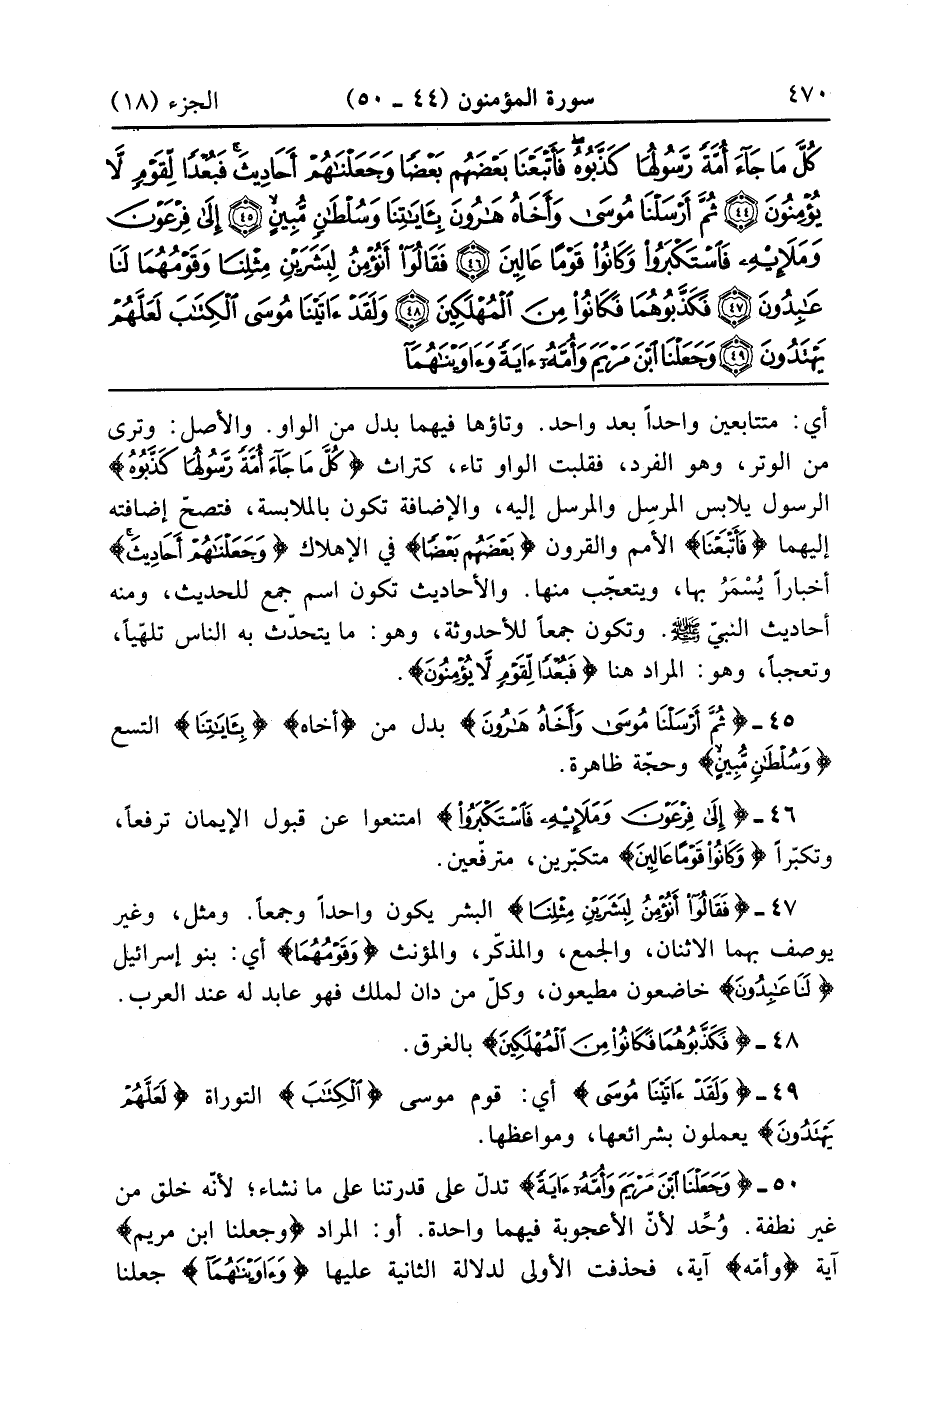 ٤٧٠ سورة المؤمنون (٤٤ ـ ٥٠) الجزء (١٨)
كُلَّ مَا جَآءَ أُمَّةً رَّسُولُهَا كَذَّبُوهُ ۖ فَأَتْبَعْنَا بَعْضَهُم بَعْضًا وَجَعَلْنَٰهُمْ أَحَادِيثَ ۚ فَبُعْدًا لِّقَوْمٍ لَّا
يُؤْمِنُونَ ﴿٤٤﴾ ثُمَّ أَرْسَلْنَا مُوسَىٰ وَأَخَاهُ هَٰرُونَ بِـَٔايَٰتِنَا وَسُلْطَٰنٍ مُّبِينٍ ﴿٤٥﴾ إِلَىٰ فِرْعَوْنَ
وَمَلَإِيْهِۦ فَٱسْتَكْبَرُوا۟ وَكَانُوا۟ قَوْمًا عَالِينَ ﴿٤٦﴾ فَقَالُوٓا۟ أَنُؤْمِنُ لِبَشَرَيْنِ مِثْلِنَا وَقَوْمُهُمَا لَنَا
عَٰبِدُونَ ﴿٤٧﴾ فَكَذَّبُوهُمَا فَكَانُوا۟ مِنَ ٱلْمُهْلَكِينَ ﴿٤٨﴾ وَلَقَدْ ءَاتَيْنَا مُوسَى ٱلْكِتَٰبَ لَعَلَّهُمْ
يَهْتَدُونَ ﴿٤٩﴾ وَجَعَلْنَا ٱبْنَ مَرْيَمَ وَأُمَّهُۥٓ ءَايَةً وَءَاوَيْنَٰهُمَآ
أي: متتابعين واحداً بعد واحد. وتاؤها فيهما بدل من الواو. والأصل: وترى
من الوتر، وهو الفرد، فقلبت الواو تاء، كتراث ﴿كُلَّ مَا جَآءَ أُمَّةً رَّسُولُهَا كَذَّبُوهُ﴾
الرسول يلابس المرسِل والمرسل إليه، والإضافة تكون بالملابسة، فتصحّ إضافته
إليهما ﴿فَأَتْبَعْنَا﴾ الأمم والقرون ﴿بَعْضَهُم بَعْضًا﴾ في الإهلاك ﴿وَجَعَلْنَٰهُمْ أَحَادِيثَ ۚ﴾
أخباراً يُسْمَرُ بها، ويتعجّب منها. والأحاديث تكون اسم جمع للحديث، ومنه
أحاديث النبيّ ﷺ. وتكون جمعاً للأحدوثة، وهو: ما يتحدّث به الناس تلهّياً،
وتعجباً، وهو: المراد هنا ﴿فَبُعْدًا لِّقَوْمٍ لَّا يُؤْمِنُونَ﴾.
٤٥ ـ ﴿ثُمَّ أَرْسَلْنَا مُوسَىٰ وَأَخَاهُ هَٰرُونَ﴾ بدل من ﴿أخاه﴾ ﴿بِـَٔايَٰتِنَا﴾ التسع
﴿وَسُلْطَٰنٍ مُّبِينٍ﴾ وحجّة ظاهرة.
٤٦ ـ ﴿إِلَىٰ فِرْعَوْنَ وَمَلَإِيْهِۦ فَٱسْتَكْبَرُوا۟﴾ امتنعوا عن قبول الإيمان ترفعاً،
وتكبّراً ﴿وَكَانُوا۟ قَوْمًا عَالِينَ﴾ متكبّرين، مترفّعين.
٤٧ ـ ﴿فَقَالُوٓا۟ أَنُؤْمِنُ لِبَشَرَيْنِ مِثْلِنَا﴾ البشر يكون واحداً وجمعاً. ومثل، وغير
يوصف بهما الاثنان، والجمع، والمذكّر، والمؤنث ﴿وَقَوْمُهُمَا﴾ أي: بنو إسرائيل
﴿لَنَا عَٰبِدُونَ﴾ خاضعون مطيعون، وكلّ من دان لملك فهو عابد له عند العرب.
٤٨ ـ ﴿فَكَذَّبُوهُمَا فَكَانُوا۟ مِنَ ٱلْمُهْلَكِينَ﴾ بالغرق.
٤٩ ـ ﴿وَلَقَدْ ءَاتَيْنَا مُوسَى﴾ أي: قوم موسى ﴿ٱلْكِتَٰبَ﴾ التوراة ﴿لَعَلَّهُمْ
يَهْتَدُونَ﴾ يعملون بشرائعها، ومواعظها.
٥٠ ـ ﴿وَجَعَلْنَا ٱبْنَ مَرْيَمَ وَأُمَّهُۥٓ ءَايَةً﴾ تدلّ على قدرتنا على ما نشاء؛ لأنّه خلق من
غير نطفة. وُحِّد لأنّ الأعجوبة فيهما واحدة. أو: المراد ﴿وجعلنا ابن مريم﴾
آية ﴿وأمّه﴾ آية، فحذفت الأولى لدلالة الثانية عليها ﴿وَءَاوَيْنَٰهُمَآ﴾ جعلنا